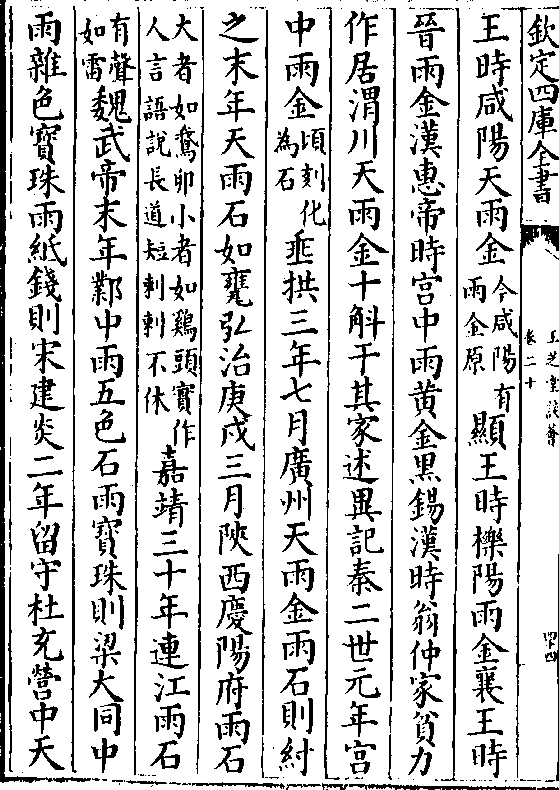 欽定四庫全書
玉芝堂談薈
卷二十
四四
王時咸陽天雨金今咸陽有雨金原顯王時櫟陽雨金襄王時
晉雨金漢惠帝時宮中雨黃金黑錫漢時翁仲家貧力
作居渭川天雨金十斛于其家述異記秦二世元年宮
中雨金頃刻化為石垂拱三年七月廣州天雨金雨石則紂
之末年天雨石如甕弘治庚戌三月陜西慶陽府雨石
大者如鵞卵小者如鷄頭實作人言語說長道短剌剌不休嘉靖三十年連江雨石
有聲如雷魏武帝末年鄴中雨五色石雨寶珠則梁大同中
雨雜色寶珠雨紙錢則宋建炎二年留守杜充營中天